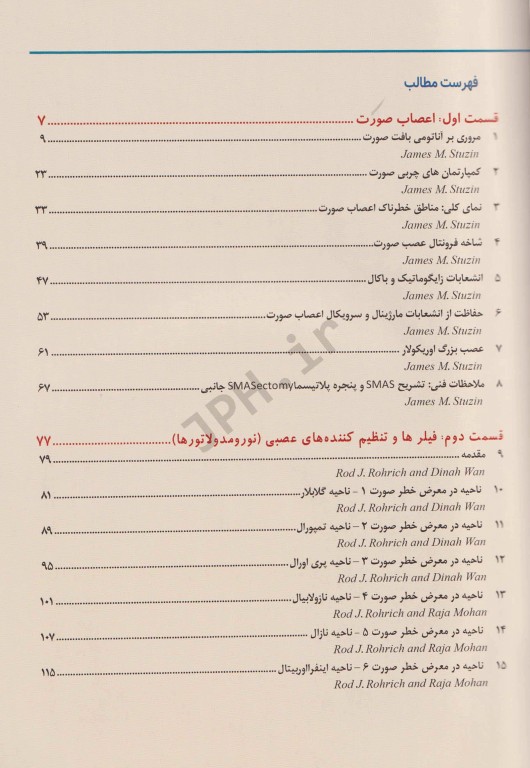 فهرست مطالب
قسمت اول: اعصاب صورت ۷
۱ مروری بر آناتومی بافت صورت ۹
James M. Stuzin
۲ کمپارتمان های چربی صورت ۲۳
James M. Stuzin
۳ نمای کلی: مناطق خطرناک اعصاب صورت ۳۳
James M. Stuzin
۴ شاخه فرونتال عصب صورت ۳۹
James M. Stuzin
۵ انشعابات زایگوماتیک و باکال ۴۷
James M. Stuzin
۶ حفاظت از انشعابات مارژینال و سرویکال اعصاب صورت ۵۳
James M. Stuzin
۷ عصب بزرگ اوریکولار ۶۱
James M. Stuzin
۸ ملاحظات فنی: تشریح SMAS و پنجره پلاتیسماSMASectomy جانبی ۶۷
James M. Stuzin
قسمت دوم: فیلر ها و تنظیم کننده‌های عصبی (نورومدولاتورها) ۷۷
۹ مقدمه ۷۹
Rod J. Rohrich and Dinah Wan
۱۰ ناحیه در معرض خطر صورت ۱ - ناحیه گلابلار ۸۱
Rod J. Rohrich and Dinah Wan
۱۱ ناحیه در معرض خطر صورت ۲ - ناحیه تمپورال ۸۹
Rod J. Rohrich and Dinah Wan
۱۲ ناحیه در معرض خطر صورت ۳ - ناحیه پری اورال ۹۵
Rod J. Rohrich and Dinah Wan
۱۳ ناحیه در معرض خطر صورت ۴ - ناحیه نازولابیال ۱۰۱
Rod J. Rohrich and Raja Mohan
۱۴ ناحیه در معرض خطر صورت ۵ - ناحیه نازال ۱۰۷
Rod J. Rohrich and Raja Mohan
۱۵ ناحیه در معرض خطر صورت ۶ - ناحیه اینفرااوربیتال ۱۱۵
Rod J. Rohrich and Raja Mohan
JPH.ir